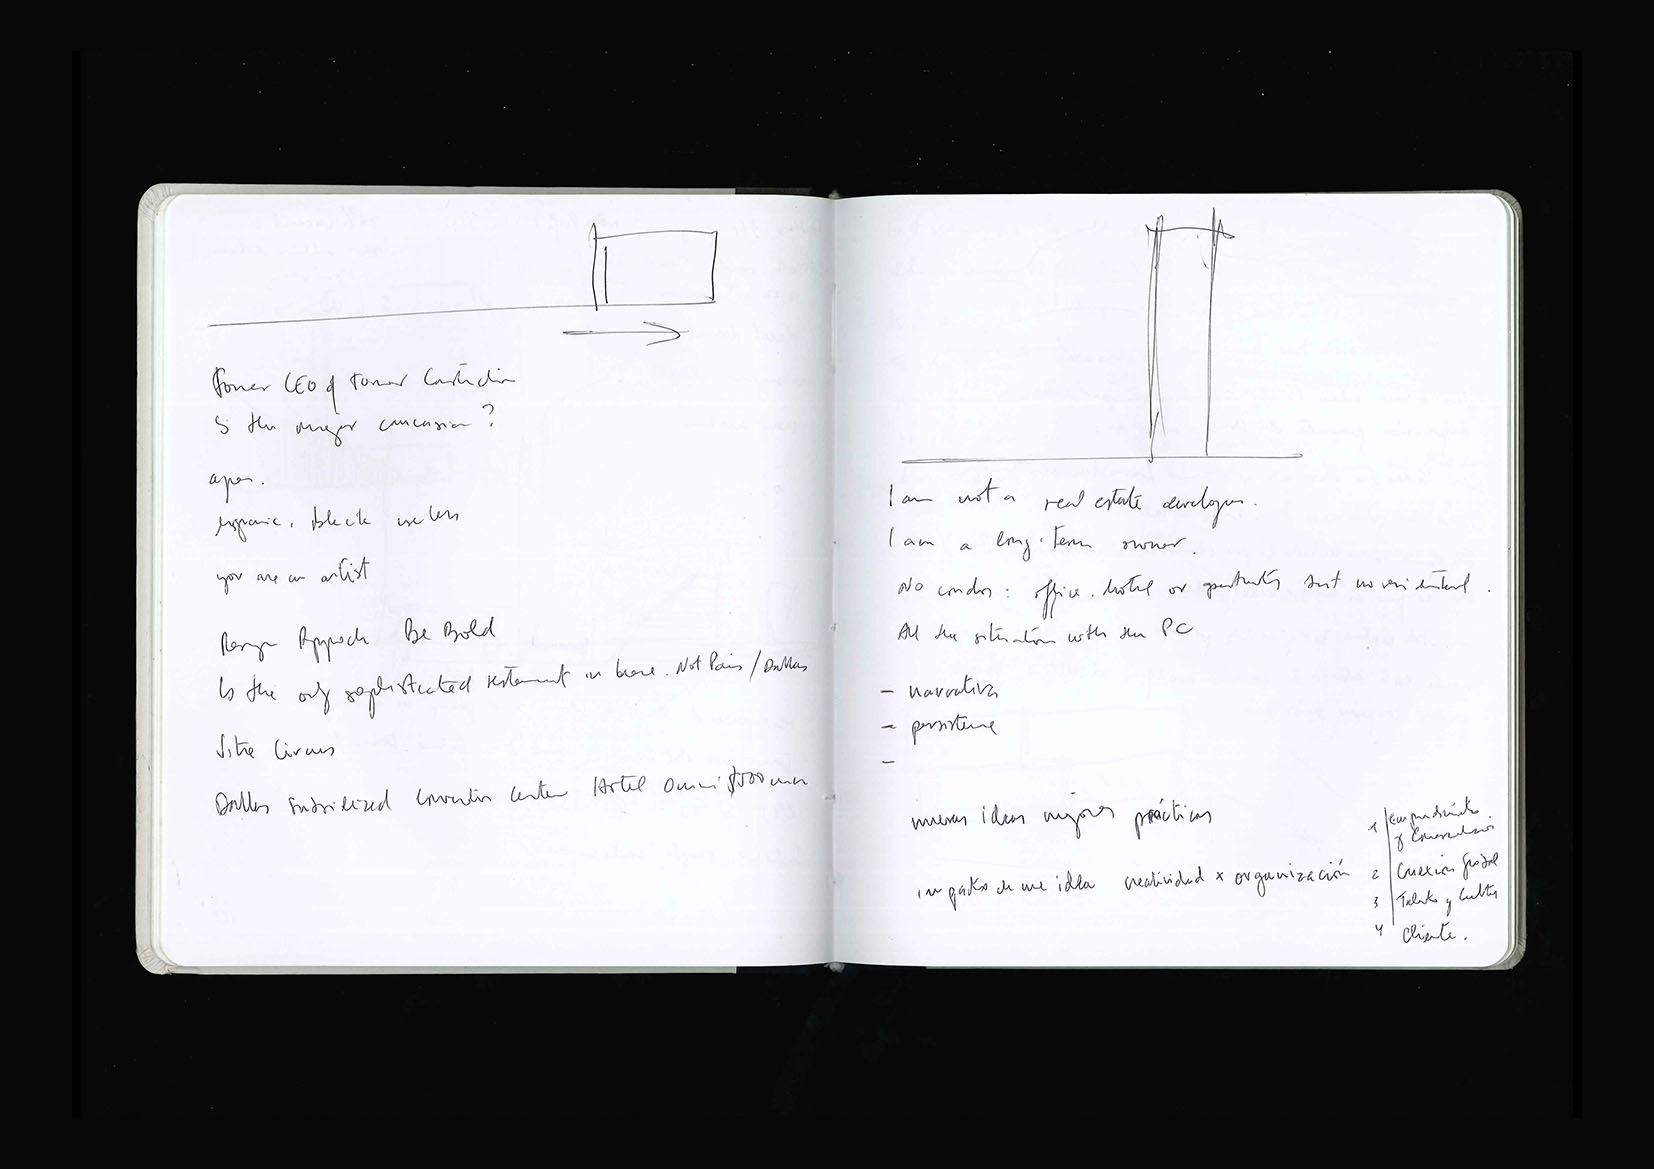 Former CEO of Turner Construction
Is the major caucasian?
hispanic, black
you are an artist
Be Bold
Is the only sophisticated in here. Not Paris / Dallas
Site Circus
Dallas subsidized Convention Center Hotel Omni $500
I am not a real estate developer.
I am a long-term owner.
No condos: office, hotel or but no residential.
All the situation with the PC
- narrativa
- persistence
-
nuevas ideas mejores prácticas
impacto de una idea creatividad x organización
1
y
2 Conexión global
3 Talento y Cultura
4 Cliente.